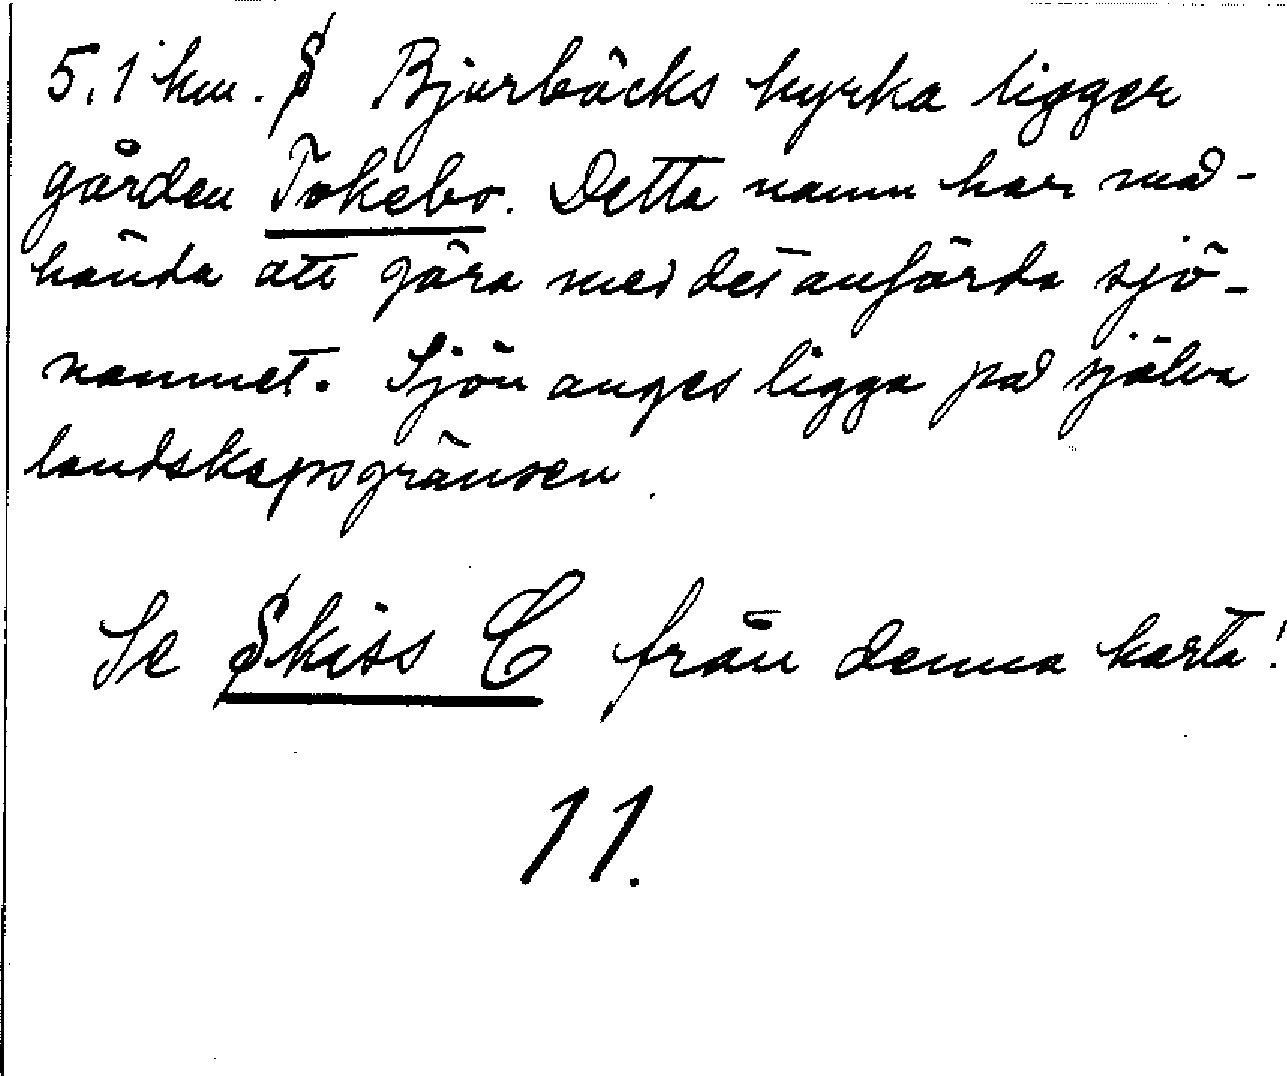 5,1 km. S Bjurbäcks kyrka ligger
gården Tokebo. Detta namn har må-
hända att göra med det anförda sjö-
namnet. Sjön anges ligga på själva
landskapsgränsen.
Se Skiss C från denna karta!
11.